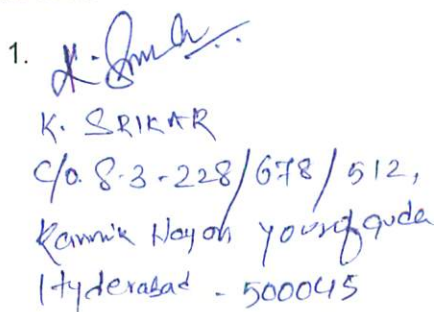 1.
K. SRIKAR
C/o. 8-3-228/678/512,
Karmik Nagar yousufguda
Hyderabad - 500045